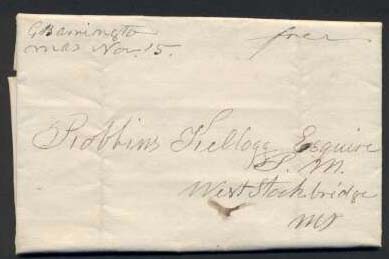 G Barrington
Mas Nov. 15.
free
Robbins Kellogg Esquire
P. M.
West Stockbridge
Ms